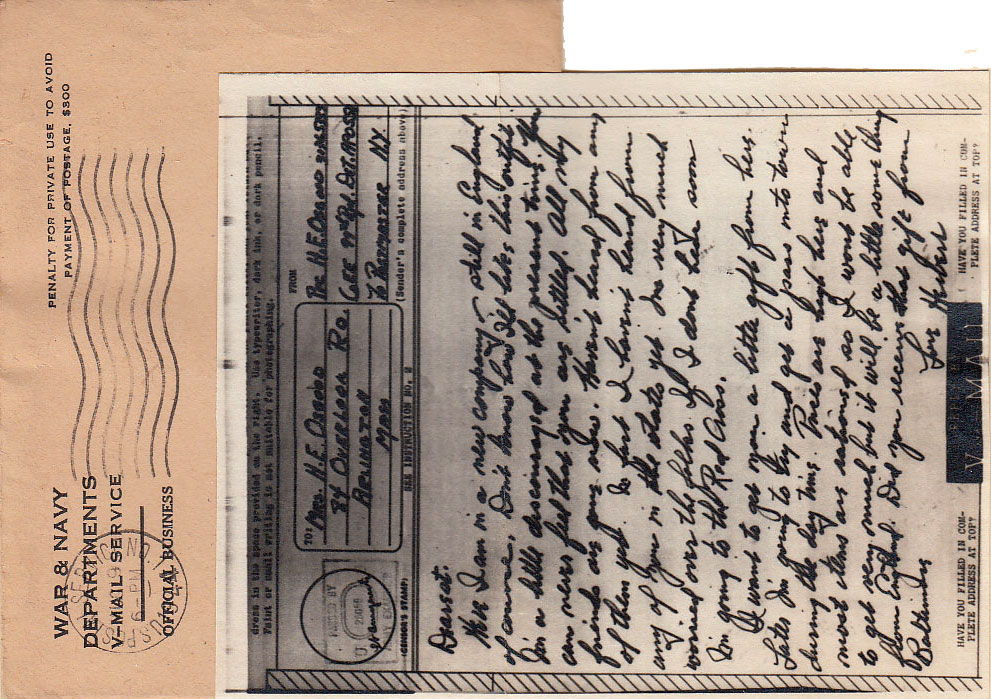 PENALTY FOR PRIVATE USE TO AVOID
PAYMENT OF POSTAGE, $300
WAR & NAVY
DEPARTMENTS
V-MAIL SERVICE
OFFICIAL BUSINESS
dress in the space provided on the right, the typewriter, dark ink, or dark pencil.
Faint or small writing is not suitable for photographing.
TO: Mrs. H.E. Osgood
84 Overlook Rd.
Arlington
Mass
FROM
Pvt. H.E. Osgood
% Postmaster NY
(Sender's complete address above)
SEE INSTRUCTION NO. 2
PASSED BY
(CENSOR'S STAMP)
Dearest:
Here I am in a new company, still in England
of course. Don't know how I'll like this outfit
I'm a little discouraged at the present time. You
can never feel that you are settled. All my
friends are gone now. Haven't heard from any
of them yet. In fact I haven't heard from
any of you in the states yet. I'm very much
worried over the folks. If I don't hear soon
I'm going to the Red Cross.
I want to get you a little gift from here.
Later I'm going to try and get a pass into town
during the day time. Prices are high here and
most items are rationed so I won't be able
to get very much but it will be a little something
from England. Did you receive that gift from
Love
Herbert
HAVE YOU FILLED IN COM-
PLETE ADDRESS AT TOP?
V-MAIL
HAVE YOU FILLED IN COM-
PLETE ADDRESS AT TOP?